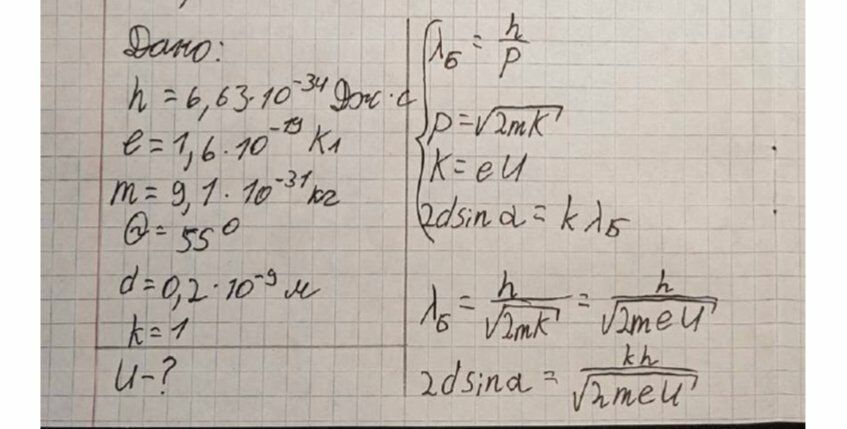 Дано:
h = 6,63·10⁻³⁴ Дж·с
e = 1,6·10⁻¹⁹ Кл
m = 9,1·10⁻³¹ кг
Θ = 55⁰
d = 0,2·10⁻⁹ м
k = 1
U - ?
λ_Б = h/p
p = √2mK
K = eU
2d sin α = k λ_Б
λ_Б = h/√2mK = h/√2meU
2d sin α = kh/√2meU